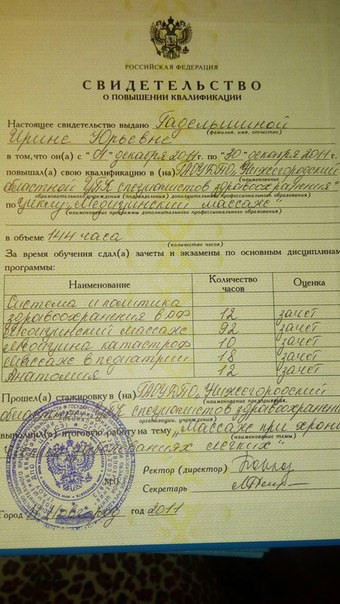 РОССИЙСКАЯ ФЕДЕРАЦИЯ
СВИДЕТЕЛЬСТВО
О ПОВЫШЕНИИ КВАЛИФИКАЦИИ
Настоящее свидетельство выдано Гадельшиной
(фамилия, имя, отчество)
Ирине Юрьевне
в том, что он(а) с 01 декабря 2011 г. по 30 декабря 2011 г.
повышал(а) свою квалификацию в (на) Нижегородский
(наименование
областной ЦПК специалистов здравоохранения"
образовательного учреждения (подразделения) дополнительного профессионального образования)
по циклу "Медицинский массаж"
(наименование программы дополнительного профессионального образования)
в объеме 144 часа
(количество часов)
За время обучения сдал(а) зачеты и экзамены по основным дисциплинам
программы:
Наименование Количество часов Оценка
Система и политика
здравоохранения в РФ 12 зачёт
Медицинский массаж 92 зачёт
Медицина катастроф 10 зачёт
Массаж в педиатрии 18 зачёт
Анатомия 12 зачёт
Прошел(а) стажировку в (на) Нижегородский
(наименование предприятия,
ЦПК специалистов здравоохранения
организации, учреждения)
выполнил(а) итоговую работу на тему "Массаж при
(наименование темы)
заболеваниях лёгких"
Ректор (директор)
Секретарь
М.П.
Город год 2011